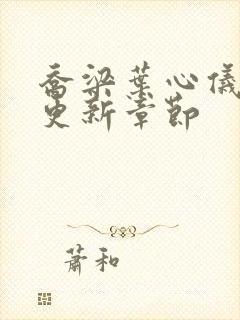 乔梁葉心儀
更新章節
蕭和